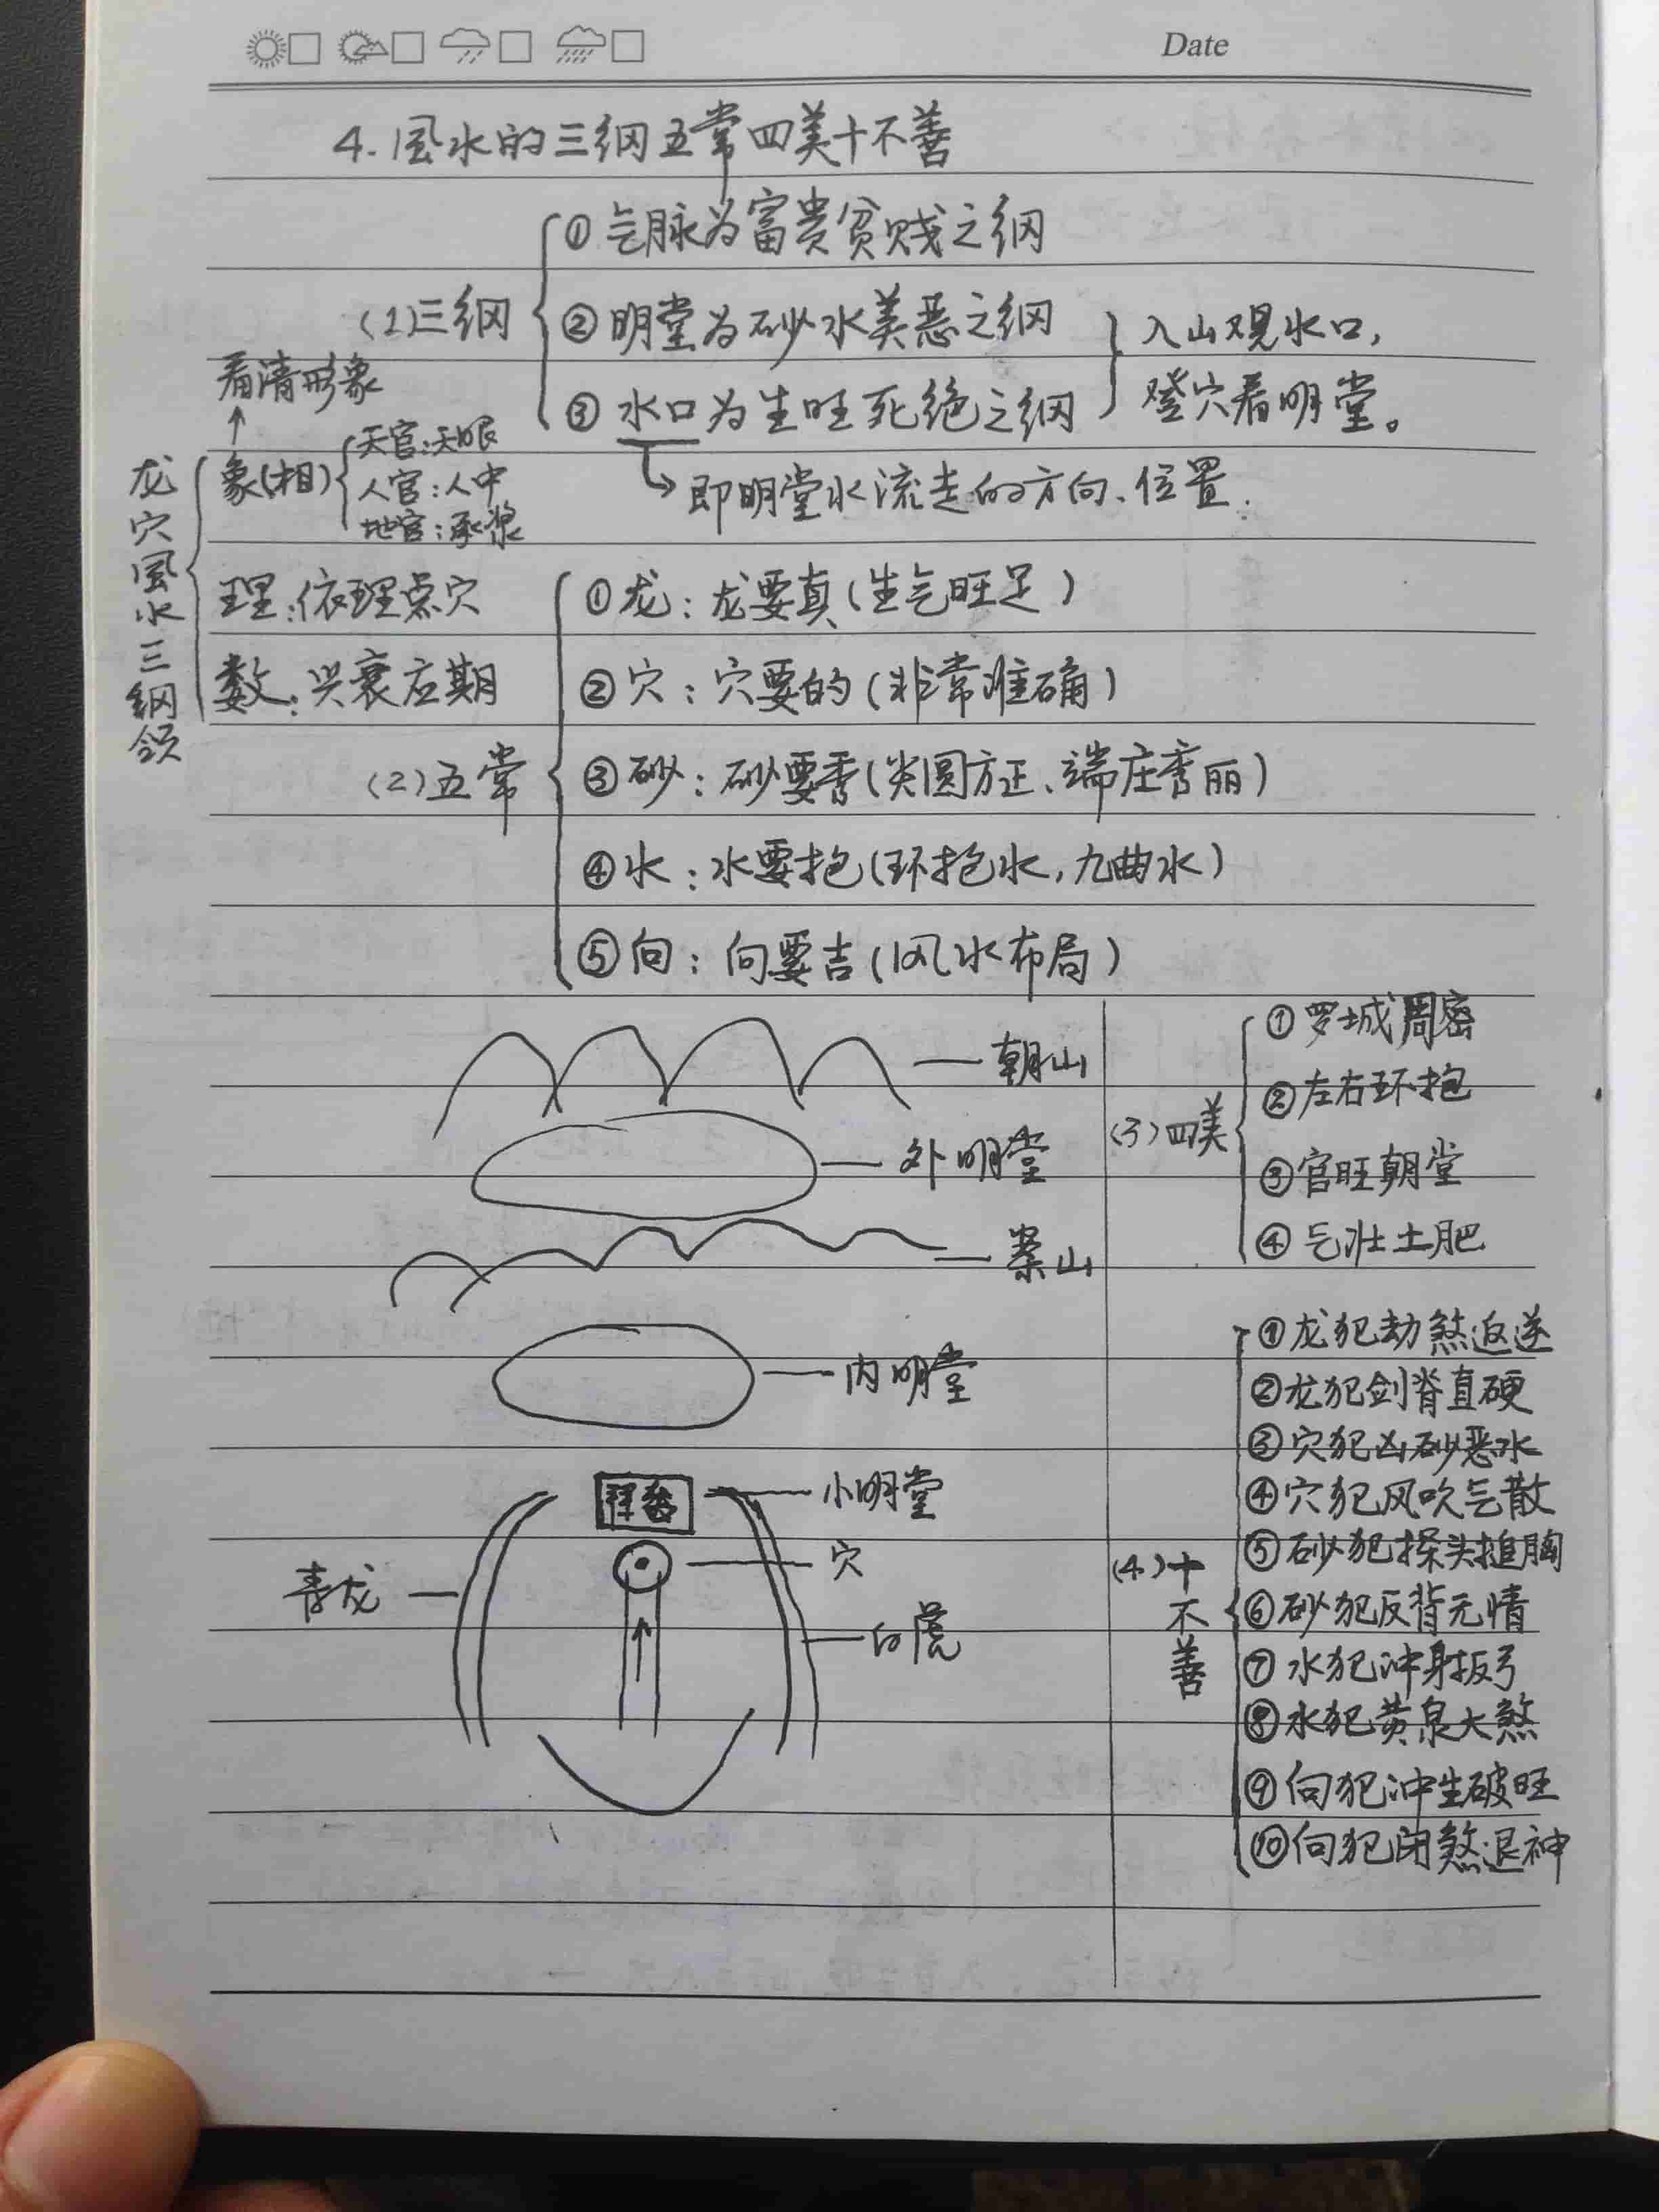 Date
4. 風水的三纲五常四美十不善
(1)三纲
①气脉为富贵贫贱之纲
②明堂为砂水美恶之纲
③水口为生旺死绝之纲
入山观水口,
登穴看明堂。
即明堂水流走的方向、位置.
龙穴風水三纲领
看清形象
象(相)
天官:天眼
人官:人中
地官:承浆
理:依理点穴
数:兴衰应期
(2)五常
①龙:龙要真(生气旺足)
②穴:穴要的(非常准确)
③砂:砂要秀(尖圆方正、端庄秀丽)
④水:水要抱(环抱水,九曲水)
⑤向:向要吉(风水布局)
朝山
外明堂
案山
内明堂
小明堂
拜台
穴
青龙
白虎
(3)四美
①罗城周密
②左右环抱
③官旺朝堂
④气壮土肥
(4)十不善
①龙犯劫煞返逆
②龙犯剑脊直硬
③穴犯凶砂恶水
④穴犯风吹气散
⑤砂犯探头搥胸
⑥砂犯反背无情
⑦水犯冲身扳弓
⑧水犯黄泉大煞
⑨向犯冲生破旺
⑩向犯闭煞退神